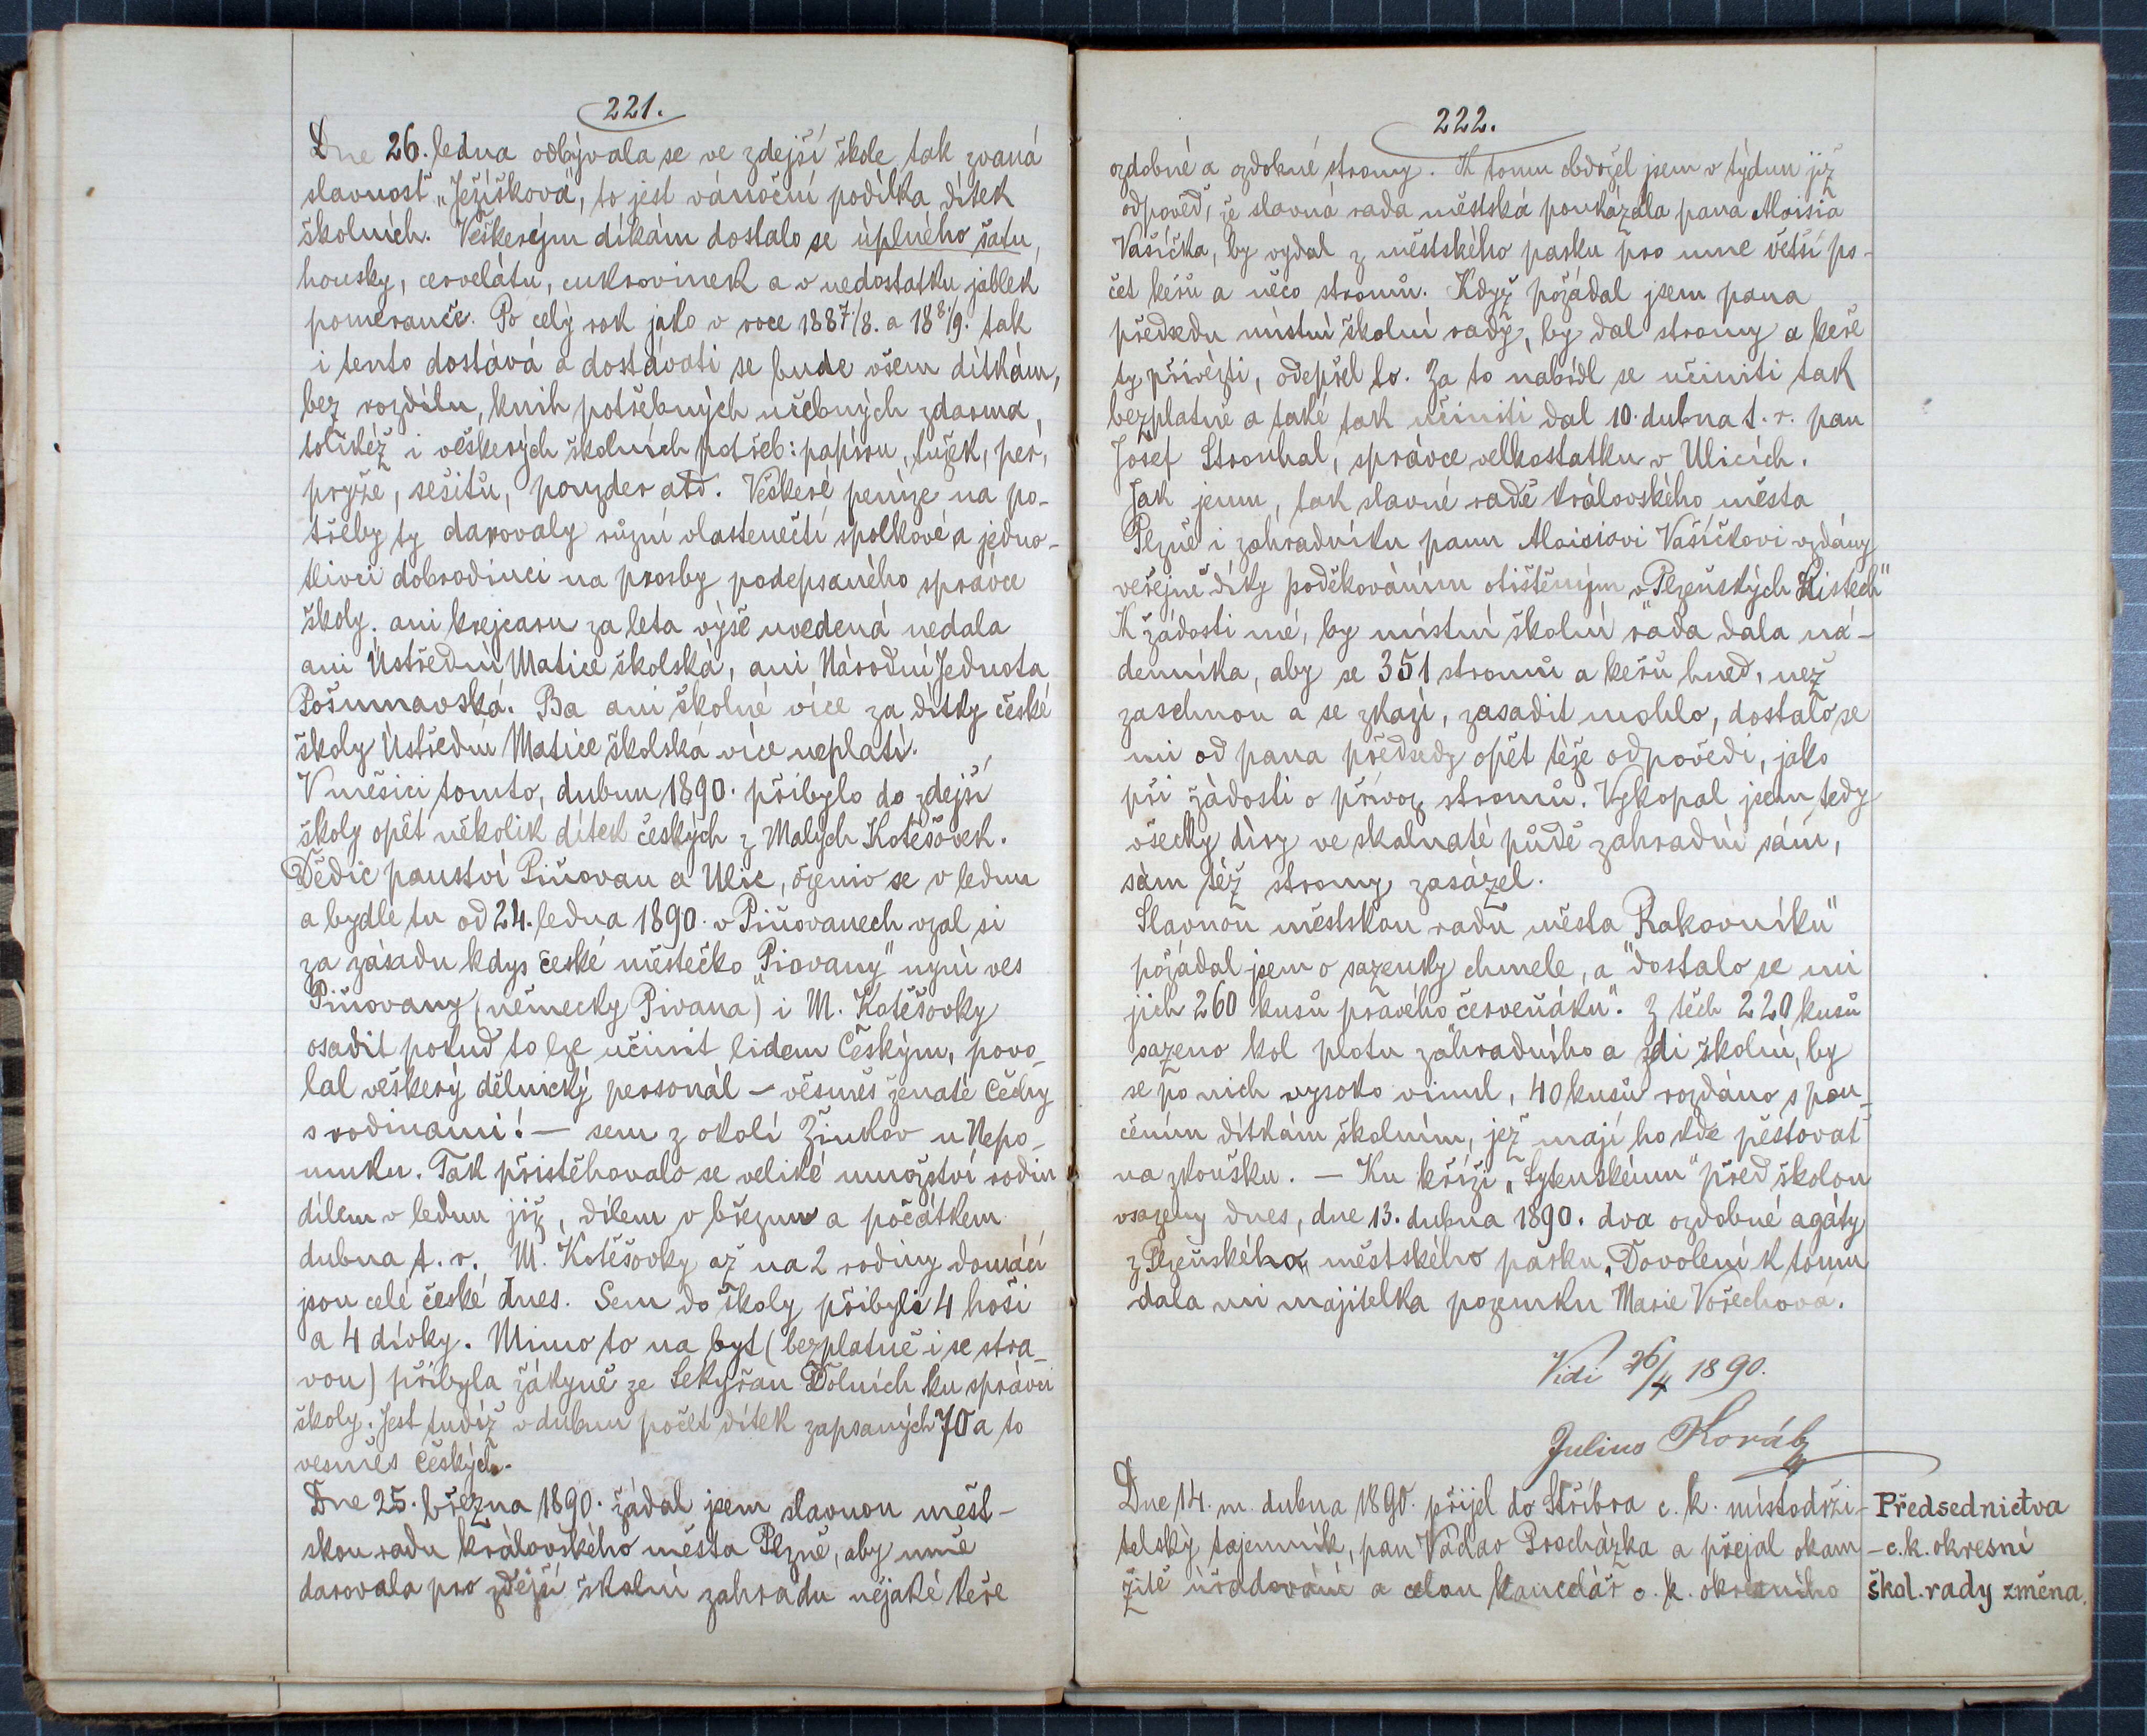 221.
Dne 26. ledna odbývala se ve zdejší škole tak zvaná
slavnosť „Ježíšková“, to jest vánoční podílka dítek
školních. Veškerým díkám dostalo se úplného šatu,
housky, cervelátu, cukrovinek a v nedostatku jablek
pomeranče. Po celý rok jako v roce 1887/8. a 188/9. tak
i tento dostává a dostávati se bude všem dítkám,
bez rozdílu, knih potřebných učebných zdarma,
tolikéž i veškerých školních potřeb: papíru, tužek, per,
pryže, sešitů, pouzder atd. Veškeré peníze na po-
třeby ty darovaly různí vlastenečtí spolkové a jedno-
tlivci dobrodinci na prosby podepsaného správce
školy. ani krejcaru za leta výše uvedená nedala
ani Ústřední Matice školská, ani Národní Jednota
Pošumavská. Ba ani školné více za dítky české
školy Ústřední Matice školská více neplatí.
V měsíci tomto, dubnu 1890. přibylo do zdejší
školy opět několik dítek českých z Malých Kotěšovek.
Dědic panství Piňovan a Ulic, oženiv se v lednu
a bydle tu od 24. ledna 1890. v Piňovanech vzal si
za zásadu kdys české městečko „Piovany“ nyní ves
Piňovany (německy Pivana) i M. Kotěšovky
osadit pokud to lze učinit lidem Českým, povo-
lal veškerý dělnický personál – věsměs ženaté Čechy
s rodinami! – sem z okolí Žinkov u Nepo-
muku. Tak přistěhovalo se veliké množství rodin
dílem v lednu již, dílem v březnu a počátkem
dubna t. r. M. Kotěšovky až na 2 rodiny domácí
jsou celé české dnes. Sem do školy přibyli 4 hoši
a 4 dívky. Mimo to na byt (bezplatně i se stra-
vou) přibyla žákyně ze Sekyřan Dolních ku správci
školy. Jest tudíž v dubnu počet dítek zapsaných 70 a to
vesměs českých.
Dne 25. března 1890. žádal jsem slavnou měst-
skou radu královského města Plzně, aby mně
darovala pro zdejší školní zahradu nějaké keře
222.
ozdobné a ozdobné stromy. K tomu obdržel jsem v týdnu již
odpověď, že slavná rada městská poukázala pana Aloisia
Vašíčka, by vydal z městského parku pro mne větší po-
čet keřů a něco stromů. Když požádal jsem pana
předsedu místní školní rady, by dal stromy a keře
ty přivézti, odepřel to. Za to nabídl se učiniti tak
bezplatně a také tak učiniti dal 10. dubna t. r. pan
Josef Strouhal, správce velkostatku v Ulicích.
Jak jemu, tak slavné radě královského města
Plzně i zahradníku panu Aloisiovi Vašíčkovi vzdány
veřejně díky poděkováním otištěným v „Plzeňských Listech“
K žádosti mé, by místní školní rada dala ná-
denníka, aby se 351 stromů a keřů hned, než
zaschnou a se zkazí, zasadit mohlo, dostalo se
mi od pana předsedy opět téže odpovědi, jako
při žádosti o přívoz stromů. Vykopal jsem tedy
všecky díry ve skalnaté půdě zahradní sám,
sám též stromy zasázel.
Slavnou městskou radu města „Rakovníku“
požádal jsem o sazenky chmele, a dostalo se mi
jich 260 kusů „pravého červeňáku“. Z těch 220 kusů
sazeno kol plotu zahradního a zdi školní, by
se po nich vysoko vinul, 40 kusů rozdáno s pou-
čením dítkám školním, jež mají ho kde pěstovat
na zkoušku. – Ku kříži „Lytenskému“ před školou
vsazeny dnes, dne 13. dubna 1890. dva ozdobné agáty
z Plzeňského městského parku. Dovolení k tomu
dala mi majitelka pozemku Marie Vořechová.
Vidi 26/4 1890.
Julius Koráb
Dne 14. m. dubna 1890. přijel do Stříbra c. k. místodrži-
telský tajemník, pan Václav Procházka a přejal okam-
žitě úřadování a celou kancelář c. k. okresního
Předsednictva
c. k. okresní
škol. rady změna.